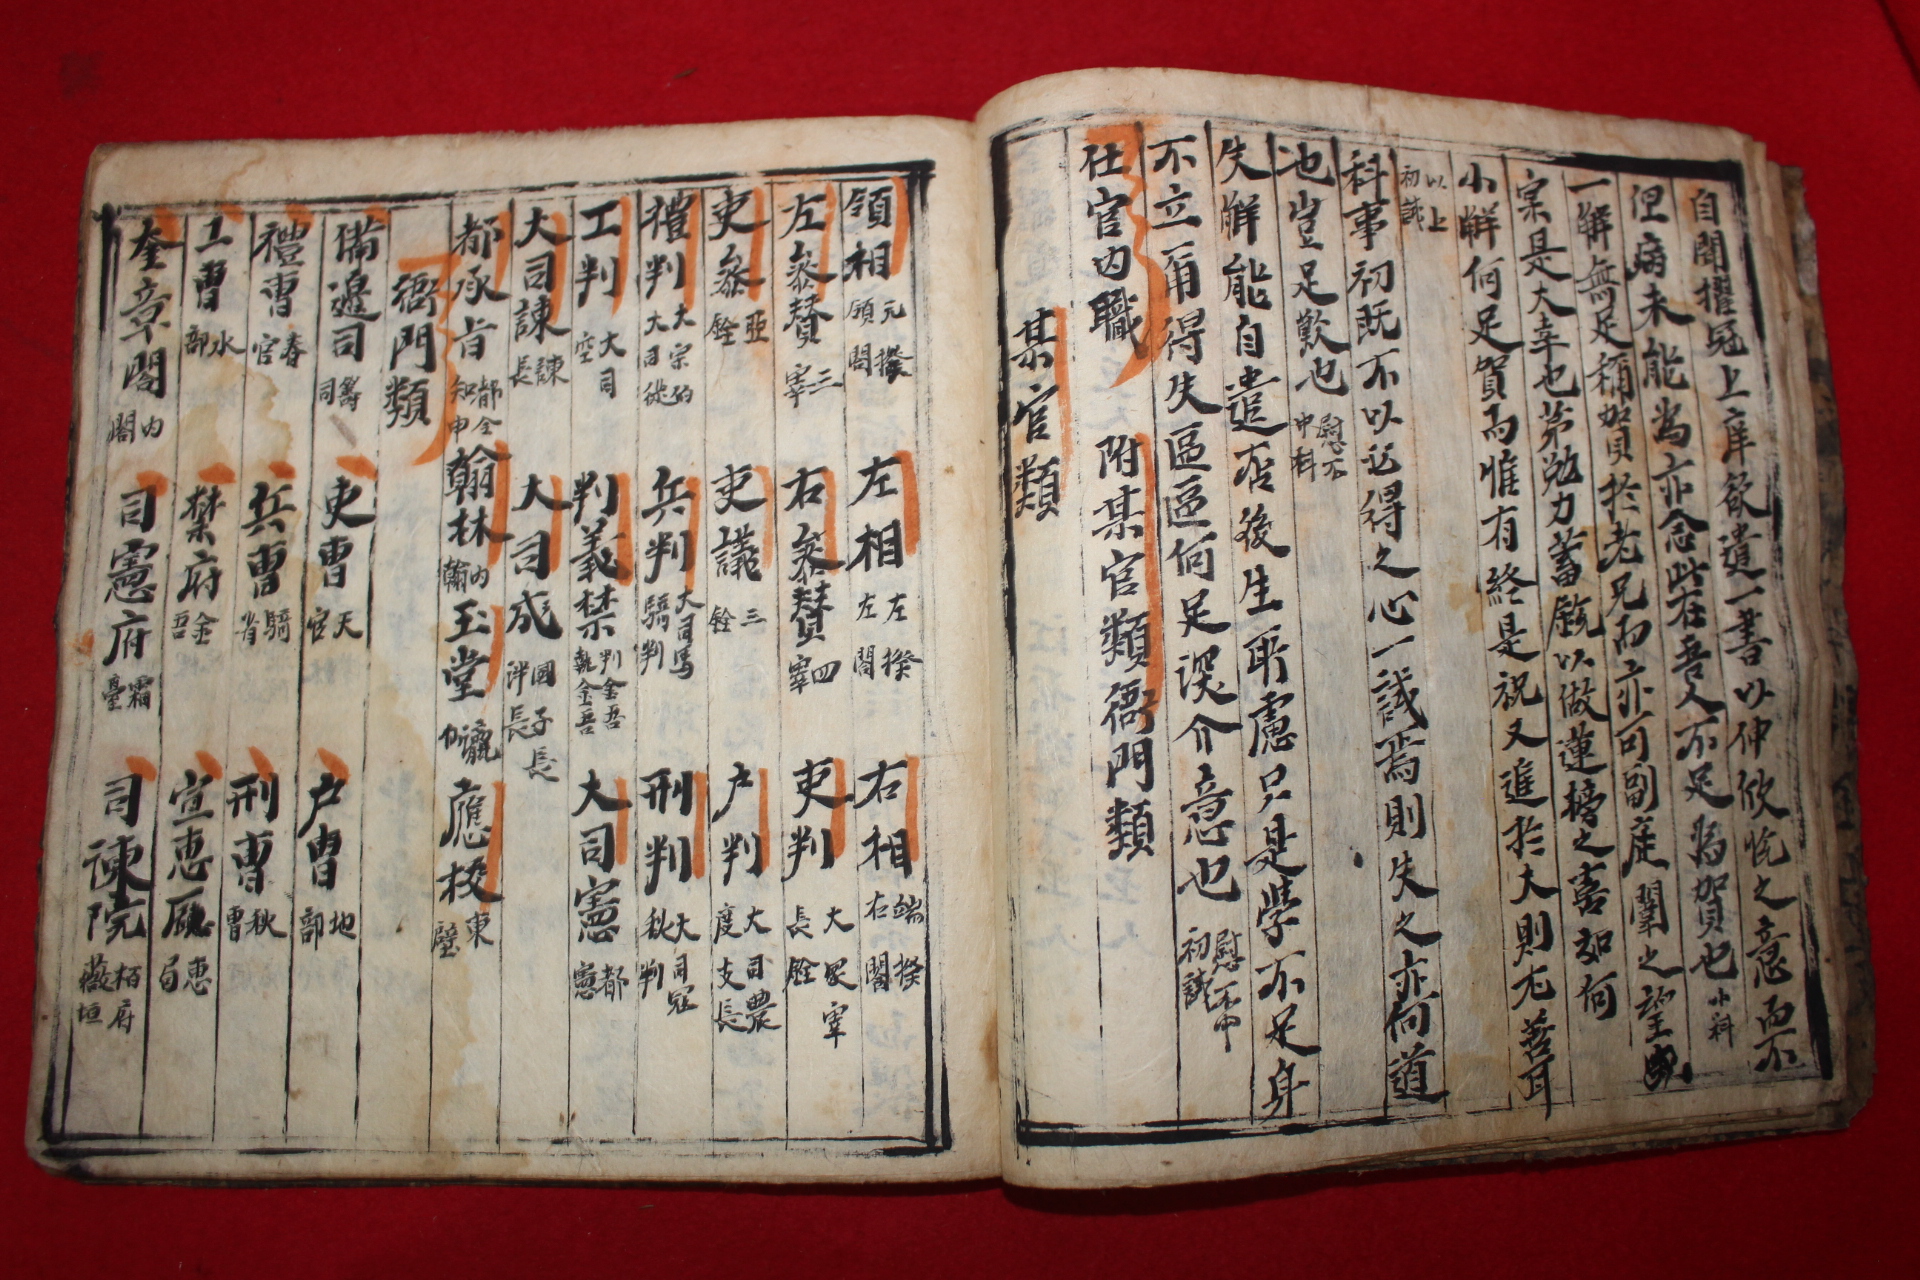 自聞擢冠上庠欲遣一書以伸欣悦之意而不
但病未能爲亦念此在吾人不足爲賀也小科
一解無足稱賀於老兄而亦可副庭闈之望
宲是大幸也苐勉力蓄銳以做蓮榜之喜如何
小解何足賀而惟有終是祝又進於大則尤善耳
以上初試
科事初既不以必得之心一試焉則失之亦何道
也豈足歎也慰不中科
失解能自遣否後生所慮只是學不足身
不立甬得失區區何足深介意也慰不中初試
仕官内職 附某官類衙門類
某官類
領相元揆領閤 左相左揆左閤 右相端揆右閤
左叅賛三宰 右叅賛四宰 吏判大冢宰長銓
吏叅亞銓 吏議三銓 户判大司農度支長
禮判大宗伯大司徒 兵判大司馬騎判 刑判大司寇秋判
工判大司空 判義禁判金吾執金吾 大司憲都憲
大司諫諫長 大司成國子長泮長
都承旨都令知申 翰林内翰 玉堂瀛 應校東壁
衙門類
備邊司籌司 吏曹天官 户曹地部
禮曹春官 兵曹騎省 刑曹秋曹
工曹水部 禁府金吾 宣惠廳惠局
奎章閣内閣 司憲府霜臺 司諫院栢府薇垣